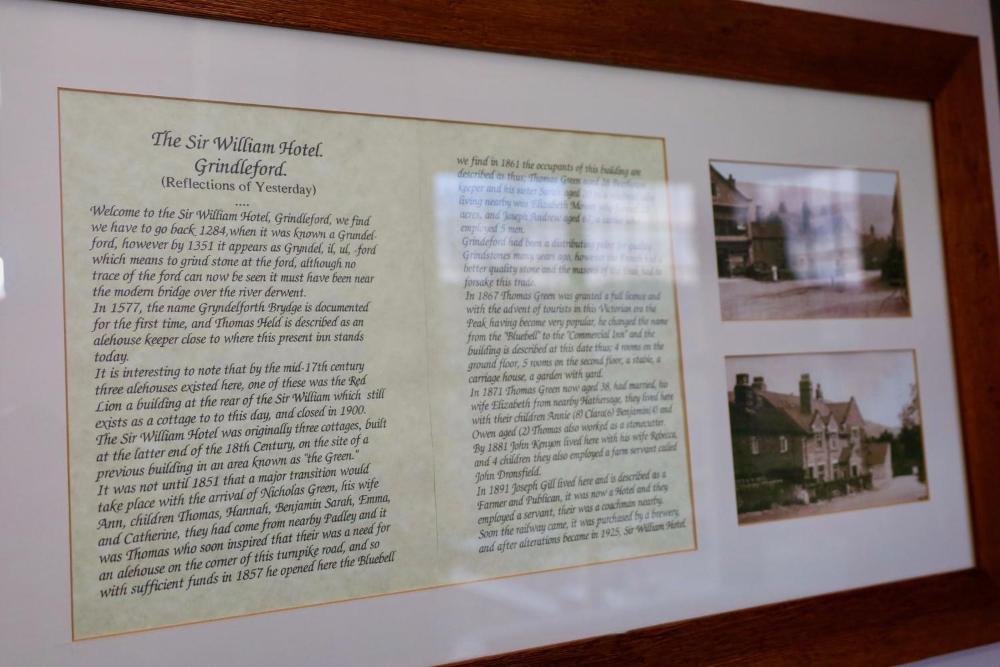 The Sir William Hotel.
Grindleford.
(Reflections of Yesterday)
....
Welcome to the Sir William Hotel, Grindleford, we find
we have to go back 1284, when it was known a Grundel-
ford, however by 1351 it appears as Gryndel, il, ul, -ford
which means to grind stone at the ford, although no
trace of the ford can now be seen it must have been near
the modern bridge over the river derwent.
In 1577, the name Gryndelforth Brydge is documented
for the first time, and Thomas Held is described as an
alehouse keeper close to where this present inn stands
today.
It is interesting to note that by the mid-17th century
three alehouses existed here, one of these was the Red
Lion a building at the rear of the Sir William which still
exists as a cottage to to this day, and closed in 1900.
The Sir William Hotel was originally three cottages, built
at the latter end of the 18th Century, on the site of a
previous building in an area known as "the Green."
It was not until 1851 that a major transition would
take place with the arrival of Nicholas Green, his wife
Ann, children Thomas, Hannah, Benjamin Sarah, Emma,
and Catherine, they had come from nearby Padley and it
was Thomas who soon inspired that their was a need for
an alehouse on the corner of this turnpike road, and so
with sufficient funds in 1857 he opened here the Bluebell
we find in 1861 the occupants of this building are
described as thus; Thomas Green aged 28 Beerhouse
keeper and his sister Sarah aged
living nearby was Elizabeth
acres, and Joseph Andrew aged
employed 5 men.
Grindeford had been a distributing point for quality
Grindstones many years ago, however the French had a
better quality stone and the masons of the Peak had to
forsake this trade.
In 1867 Thomas Green was granted a full licence and
with the advent of tourists in this Victorian era the
Peak having become very popular, he changed the name
from the "Bluebell" to the "Commercial Inn" and the
building is described at this date thus; 4 rooms on the
ground floor, 5 rooms on the second floor, a stable, a
carriage house, a garden with yard.
In 1871 Thomas Green now aged 38, had married, his
wife Elizabeth from nearby Hathersage, they lived here
with their children Annie (8) Clara(6) Benjamin(4) and
Owen aged (2) Thomas also worked as a stonecutter.
By 1881 John Kenyon lived here with his wife Rebecca,
and 4 children they also employed a farm servant called
John Dronsfield.
In 1891 Joseph Gill lived here and is described as a
Farmer and Publican, it was now a Hotel and they
employed a servant, their was a coachman nearby.
Soon the railway came, it was purchased by a brewery,
and after alterations became in 1925, Sir William Hotel.